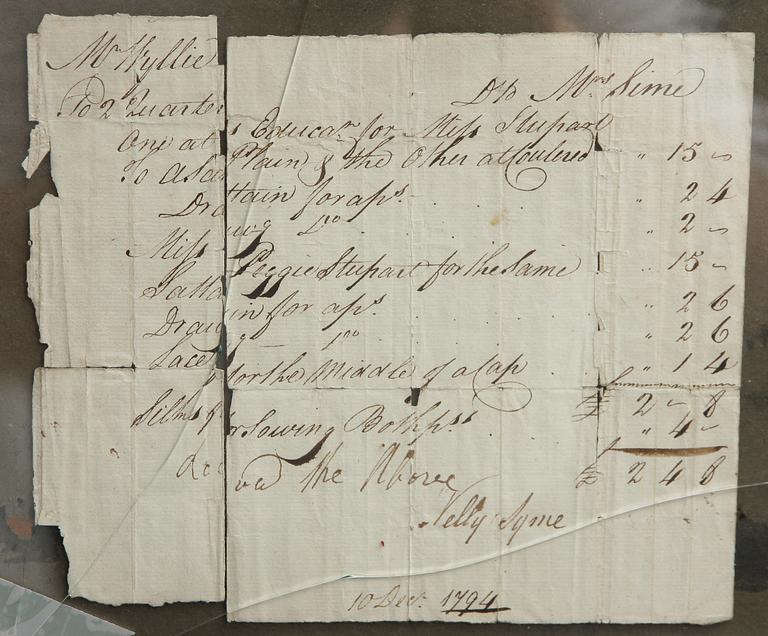 Mr Wyllie Dr to Mrs Sime
To 2 Quarters Educan for Miss Stupart
One at Plain & the Other at Coulered " 15 ~
To a Sattain for aps. " 2 4
Drawing Do " 2 ~
Miss Peggie Stupart for the Same " 15 ~
Sattain for aps. " 2 6
Drawing Do " 2 6
Lace for the Middle of a Cap " 1 4
£ 2 ~ 8
Silks for Sowing Both ps " 4 ~
Received the Above £ 2 4 8
Nelly Syme
10 Decr. 1794